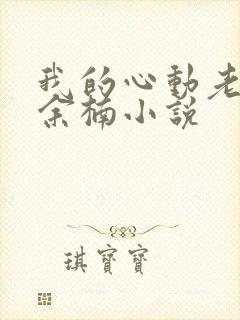 我的心動老
余楠小說
琪寶寶